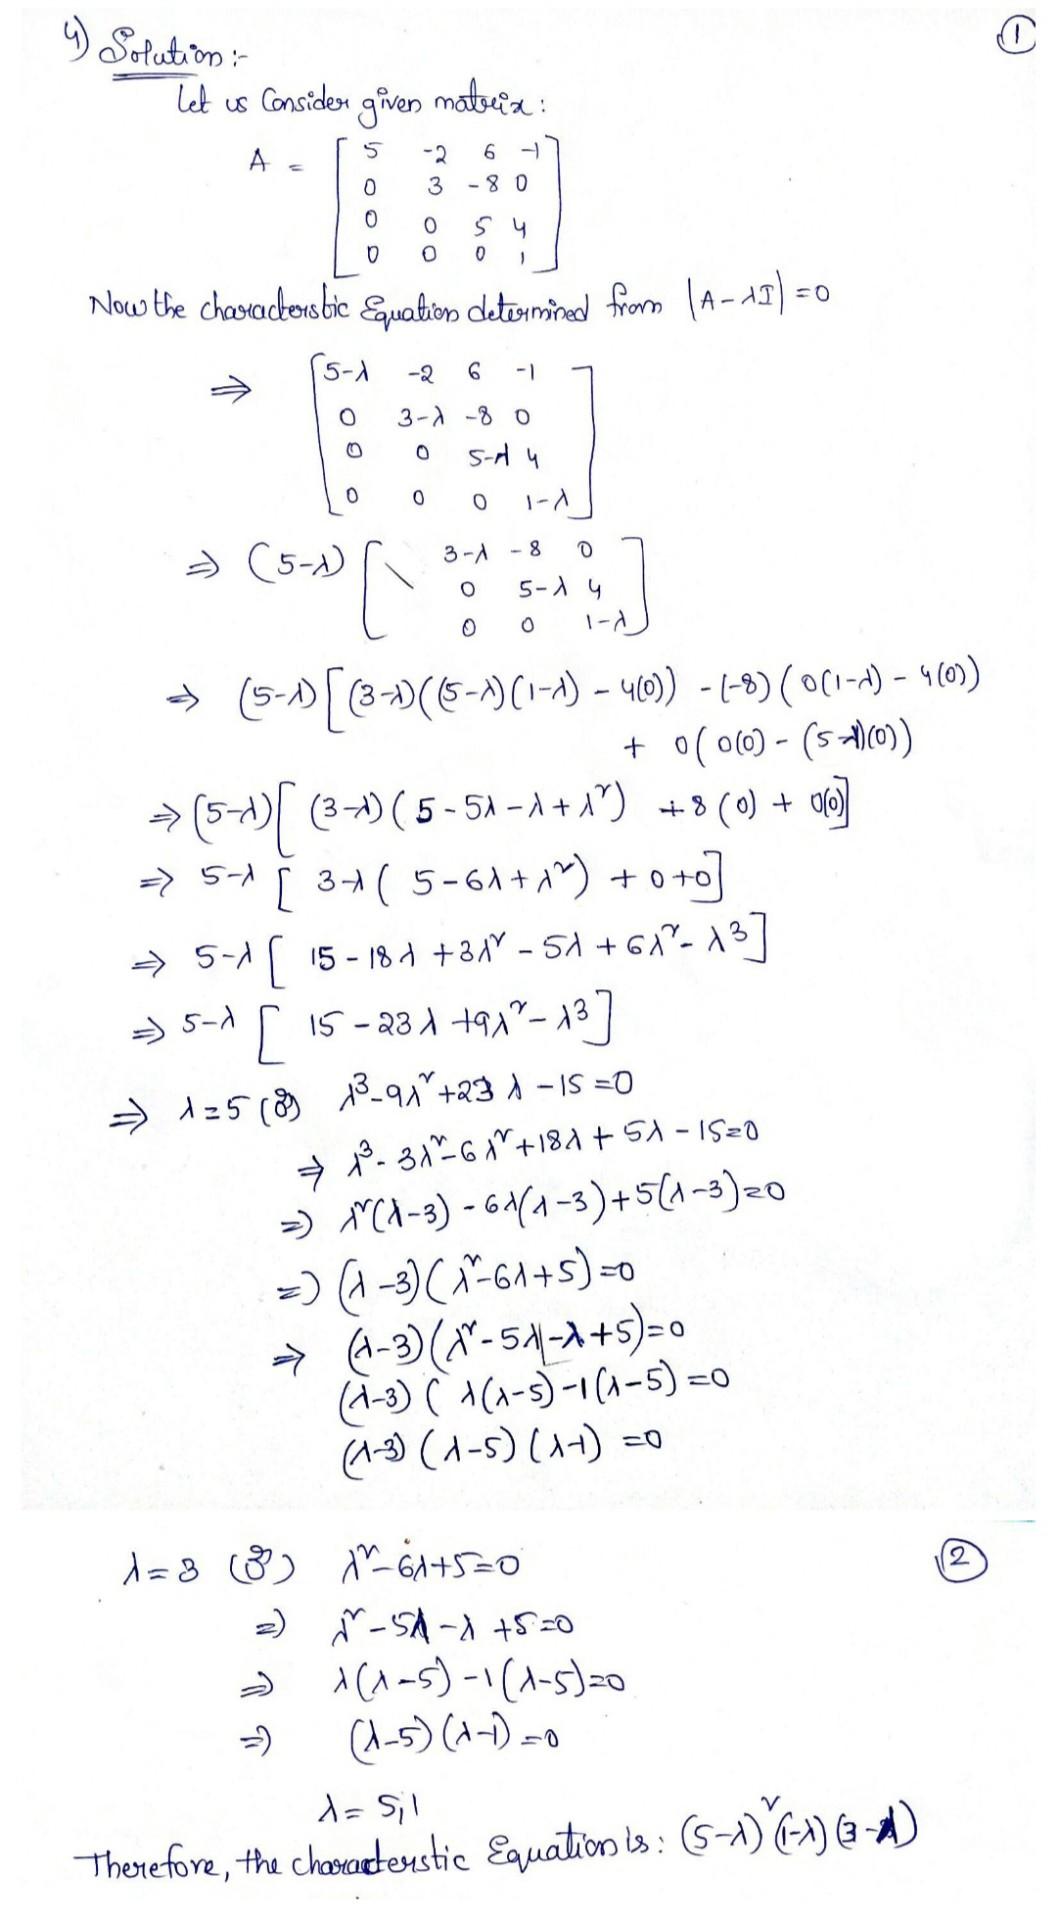 4) Solution :- ①
Let us Consider given matrix :
A = [ 5 -2 6 -1
0 3 -8 0
0 0 5 4
0 0 0 1 ]
Now the characteristic Equation determined from |A-λI| = 0
⇒ [ 5-λ -2 6 -1
0 3-λ -8 0
0 0 5-λ 4
0 0 0 1-λ ]
⇒ (5-λ) [ \ 3-λ -8 0
0 5-λ 4
0 0 1-λ ]
⇒ (5-λ) [ (3-λ)((5-λ)(1-λ) - 4(0)) - (-8) (0(1-λ) - 4(0))
+ 0( 0(0) - (5-λ)(0))
⇒ (5-λ) [ (3-λ) ( 5 - 5λ - λ + λ²) + 8 (0) + 0(0)]
⇒ 5-λ [ 3-λ ( 5 - 6λ + λ²) + 0 + 0]
⇒ 5-λ [ 15 - 18λ + 3λ² - 5λ + 6λ² - λ³]
⇒ 5-λ [ 15 - 23λ + 9λ² - λ³]
⇒ λ = 5 (or) λ³ - 9λ² + 23λ - 15 = 0
⇒ λ³ - 3λ² - 6λ² + 18λ + 5λ - 15 = 0
⇒ λ²(λ-3) - 6λ(λ-3) + 5(λ-3) = 0
⇒ (λ-3) (λ² - 6λ + 5) = 0
⇒ (λ-3) (λ² - 5λ - λ + 5) = 0
(λ-3) ( λ(λ-5) - 1(λ-5) = 0
(λ-3) (λ-5) (λ-1) = 0
λ = 3 (or) λ² - 6λ + 5 = 0 ②
⇒ λ² - 5λ - λ + 5 = 0
⇒ λ(λ-5) - 1(λ-5) = 0
⇒ (λ-5) (λ-1) = 0
λ = 5, 1
Therefore, the characterstic Equation is : (5-λ)² (1-λ) (3-λ)